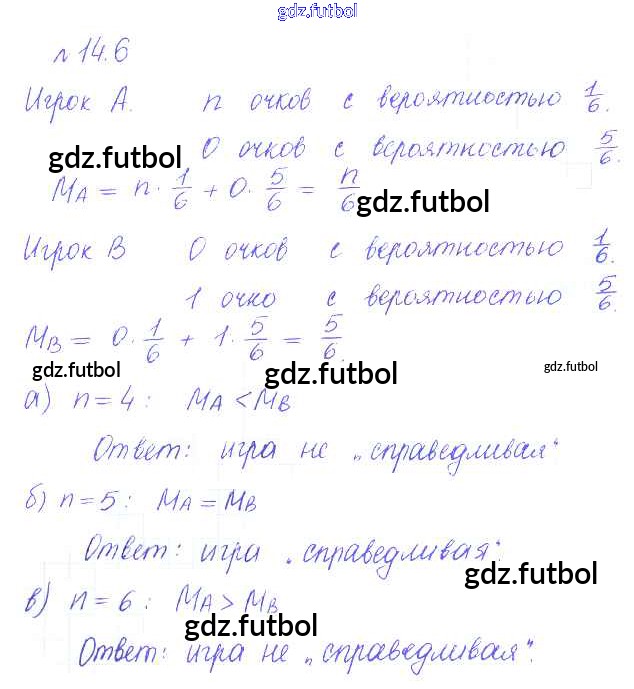 gdz.futbol
№ 14.6
Игрок А. n очков с вероятностью 1/6.
0 очков с вероятностью 5/6.
gdz.futbol
MA = n · 1/6 + 0 · 5/6 = n/6
gdz.futbol
Игрок В 0 очков с вероятностью 1/6.
1 очко с вероятностью 5/6.
MB = 0 · 1/6 + 1 · 5/6 = 5/6.
gdz.futbol gdz.futbol gdz.futbol
а) n = 4 : MA < MB
Ответ: игра не „справедливая“
б) n = 5 : MA = MB
Ответ: игра „справедливая“.
gdz.futbol
в) n = 6 : MA > MB
gdz.futbol
Ответ: игра не „справедливая“.